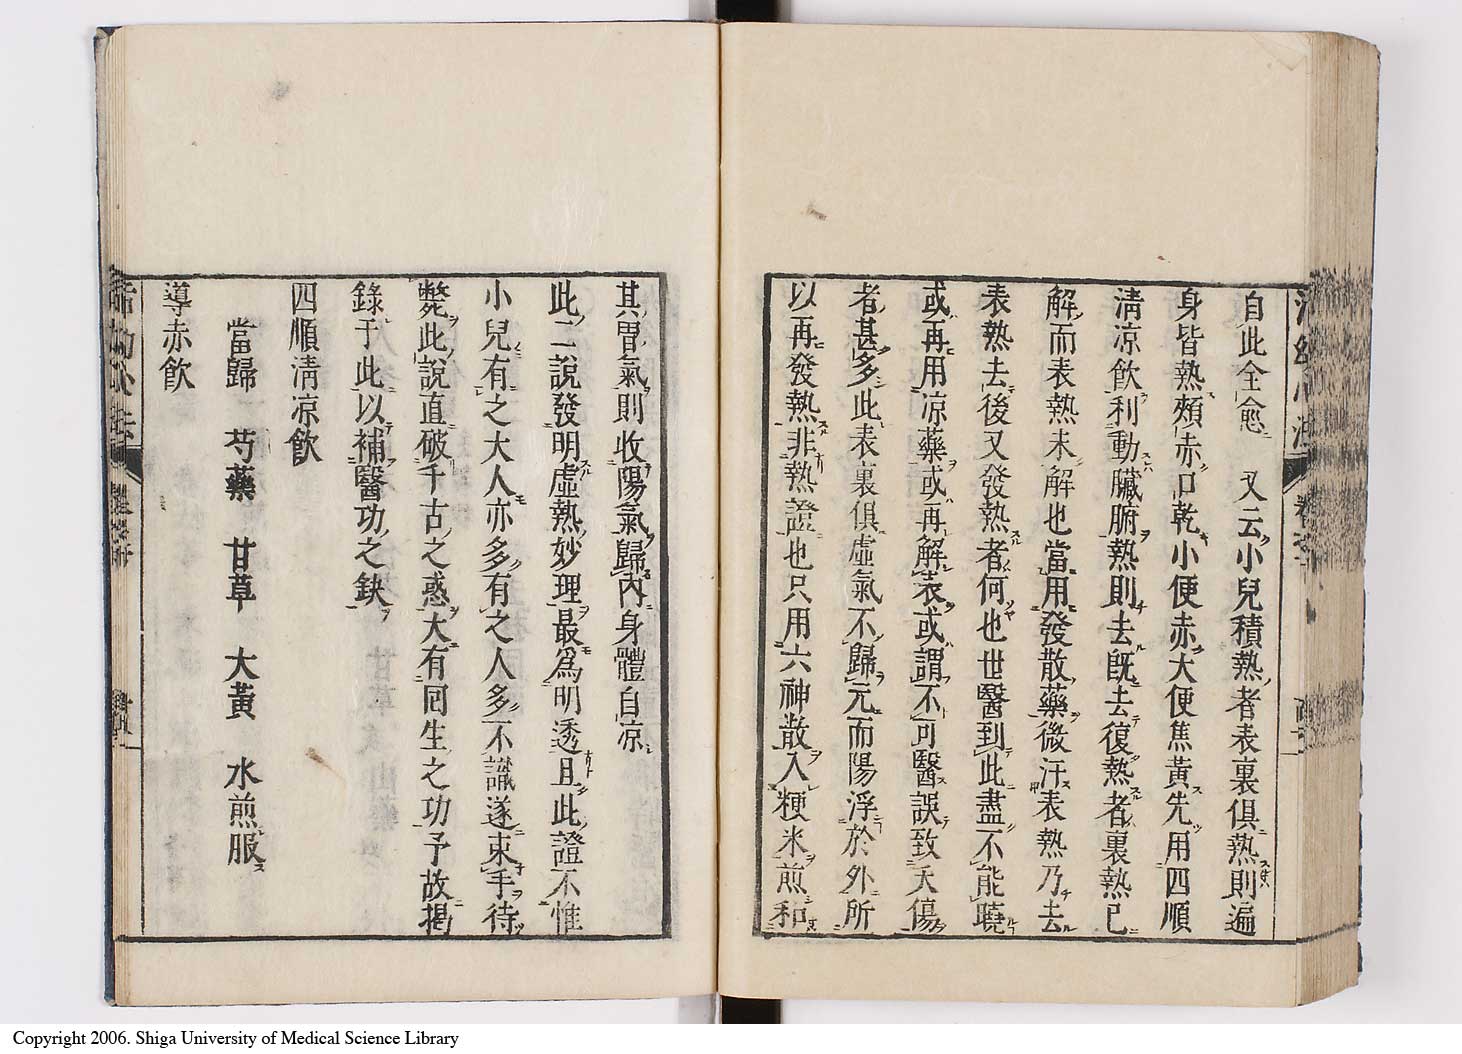 自此全愈 又云小兒積熱者表裏俱熱則遍
身皆熱頰赤口乾小便赤大便焦黃先用四順
淸凉飮利動臟腑熱則去旣去復熱者裏熱已
解而表熱未解也當用發散藥微汗表熱乃去
表熱去後又發熱者何也世醫到此盡不能曉
或再用凉藥或再解表或謂不可醫誤致夭傷
者甚多此表裏俱虛氣不歸元而陽浮於外所
以再發熱非熱證也只用六神散入粳米煎和
其胃氣則收陽氣歸內身體自凉
此二說發明虛熱妙理最爲明透且此證不惟
小兒有之大人亦多有之人多不識遂束手待
斃此說直破千古之惑大有回生之功予故揭
錄于此以補醫功之缺
四順淸凉飮
當歸 芍藥 甘草 大黃 水煎服
導赤飮
Copyright 2006. Shiga University of Medical Science Library